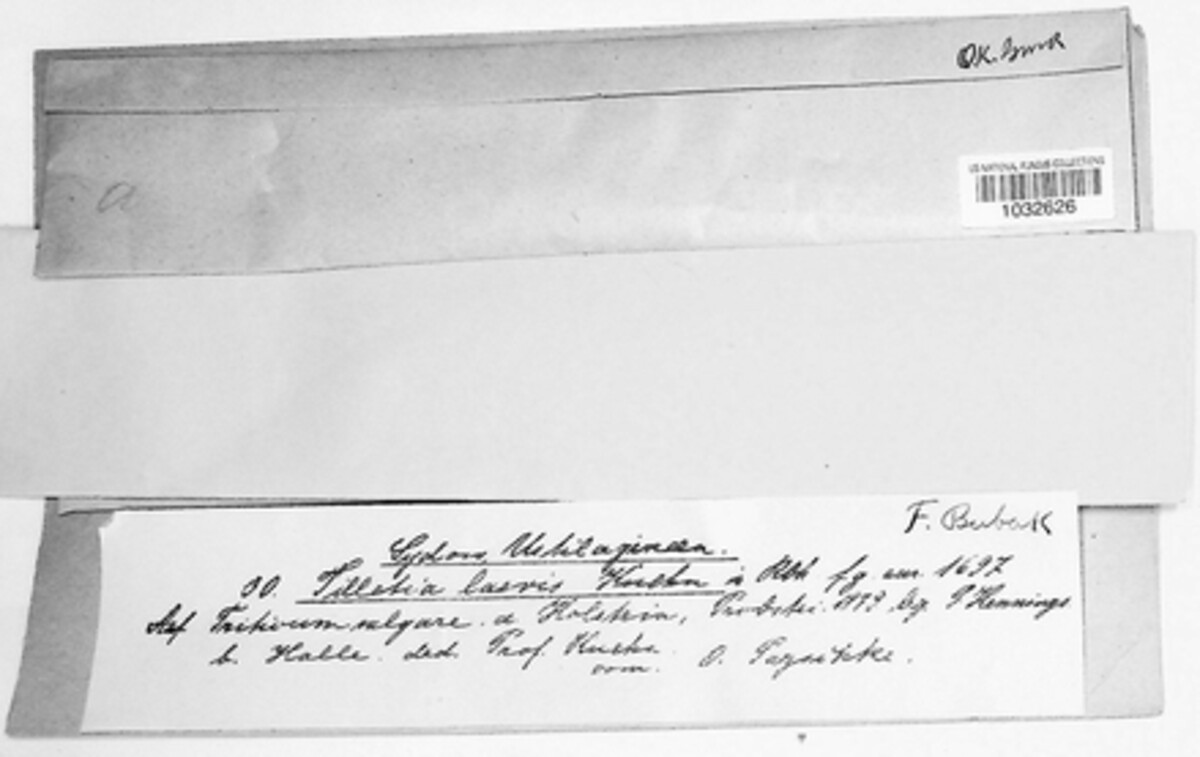 OK.
a
US NATIONAL FUNGUS COLLECTIONS
1032626
F. Bubak
Sydow, Ustilagineen.
30. Tilletia laevis Kuehn in Rbh fg. eur. 1697
Auf Tritivum vulgare. a Holstein, Probstei. leg. P Hennings
b. Halle. ded. Prof. Kuehn.
com. O.